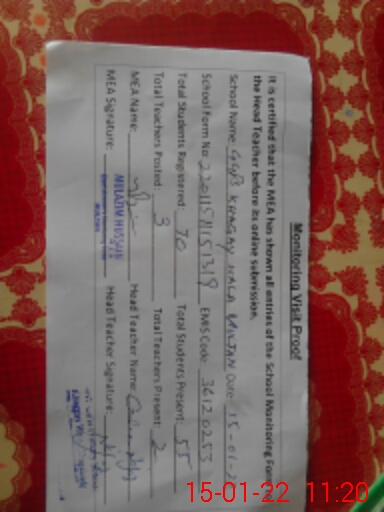 Monitoring Visit Proof
It is certified that the MEA has shown all entries of the School Monitoring Form
the Head Teacher before its online submission.
School Name: GGPS KHAGAY WALA MULTAN Date: 15-01-2
School Form No: 2201151151319 EMIS Code: 36120253
Total Students Registered: 70 Total Students Present: 55
Total Teachers Posted: 3 Total Teachers Present: 2
MEA Name: Head Teacher Name:
MEA Signature: MULAZIM HUSSAIN Head Teacher Signature:
15-01-22 11:20